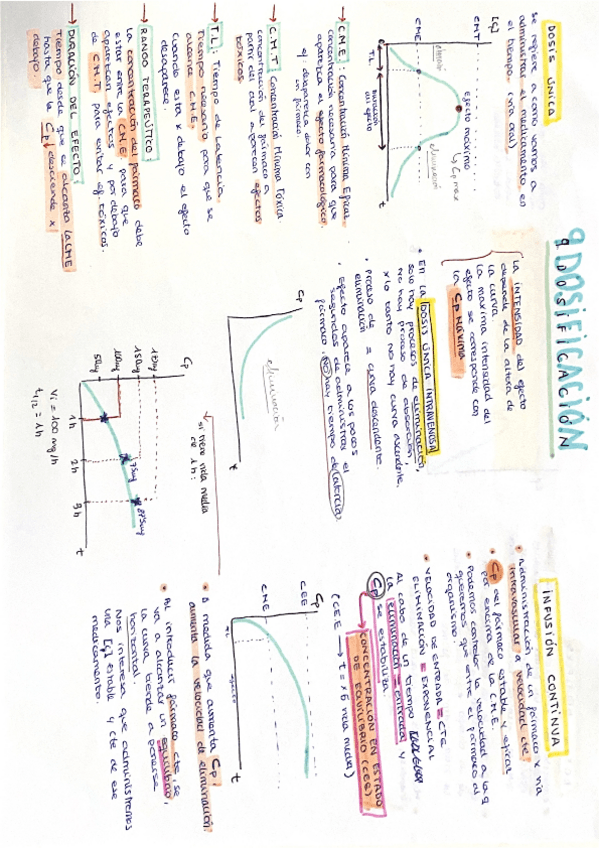 9 DOSIFICACIÓN
DOSIS ÚNICA
se refiere a como vamos a
administrar el medicamento en
el tiempo. (vía oral)
[c]
CMT
CME
Efecto máximo
↳ Cp max
eliminación
T.L.
Duración
del efecto
t
C.M.E.: Concentración Mínima Eficaz.
concentración necesaria para que
aparezca el efecto farmacológico.
C.M.T: Concentración Mínima Tóxica
concentración de fármaco a
partir del cual aparecen efectos
tóxicos.
T.L: Tiempo de Latencia.
Tiempo necesario para que se
alcance C.M.E.
Cuando esta x debajo el efecto
desaparece.
RANGO TERAPEÚTICO:
La concentración del fármaco debe
estar entre la C.M.E. para que
aparezcan efectos y por debajo
de C.M.T. para evitar ef. tóxicos.
DURACIÓN DEL EFECTO:
Tiempo desde que se alcanza la CME
hasta que la Cp↓ desciende x
debajo.
La INTENSIDAD del efecto
depende de la altura de
la curva.
La máxima intensidad del
efecto se corresponde con
la Cp Máxima
• En la DOSIS ÚNICA INTRAVENOSA
solo hay procesos de eliminación,
no hay proceso de absorción,
x lo tanto no hay curva ascendente.
• Proceso de = curva descendente.
eliminación
• Efecto aparece a los pocos
segundos de administrar el
fármaco. NO hay tiempo de latencia.
Cp
eliminación
t
si tiene vida media
de 1h:
Cp
150ug
100ug
50ug
75ug
1h
2h
3h
t
Vi = 100 mg/h
t1/2 = 1h
INFUSIÓN CONTINUA
• Administración de un fármaco x vía
intravascular a velocidad cte.
• Cp del fármaco estable y eficaz
por encima de la C.M.E.
• Podemos controlar la velocidad a la q
queremos que entre el fármaco al
organismo
• VELOCIDAD DE ENTRADA = CTE
ELIMINACIÓN = EXPONENCIAL
Al cabo de un tiempo
la eliminación = entrada y
Cp se estabiliza
CONCENTRACIÓN EN ESTADO
DE EQUILIBRIO (CEE)
(CEE → t = x6 vida media)
Cp
CEE
CME
TL
efecto
t
• A medida que aumenta Cp,
aumenta la velocidad de eliminación.
• Al introducir fármaco cte, se
va a alcanzar un equilibrio,
la curva tiende a ponerse
horizontal.
Nos interesa que administremos
una [c] estable y cte de ese
medicamento